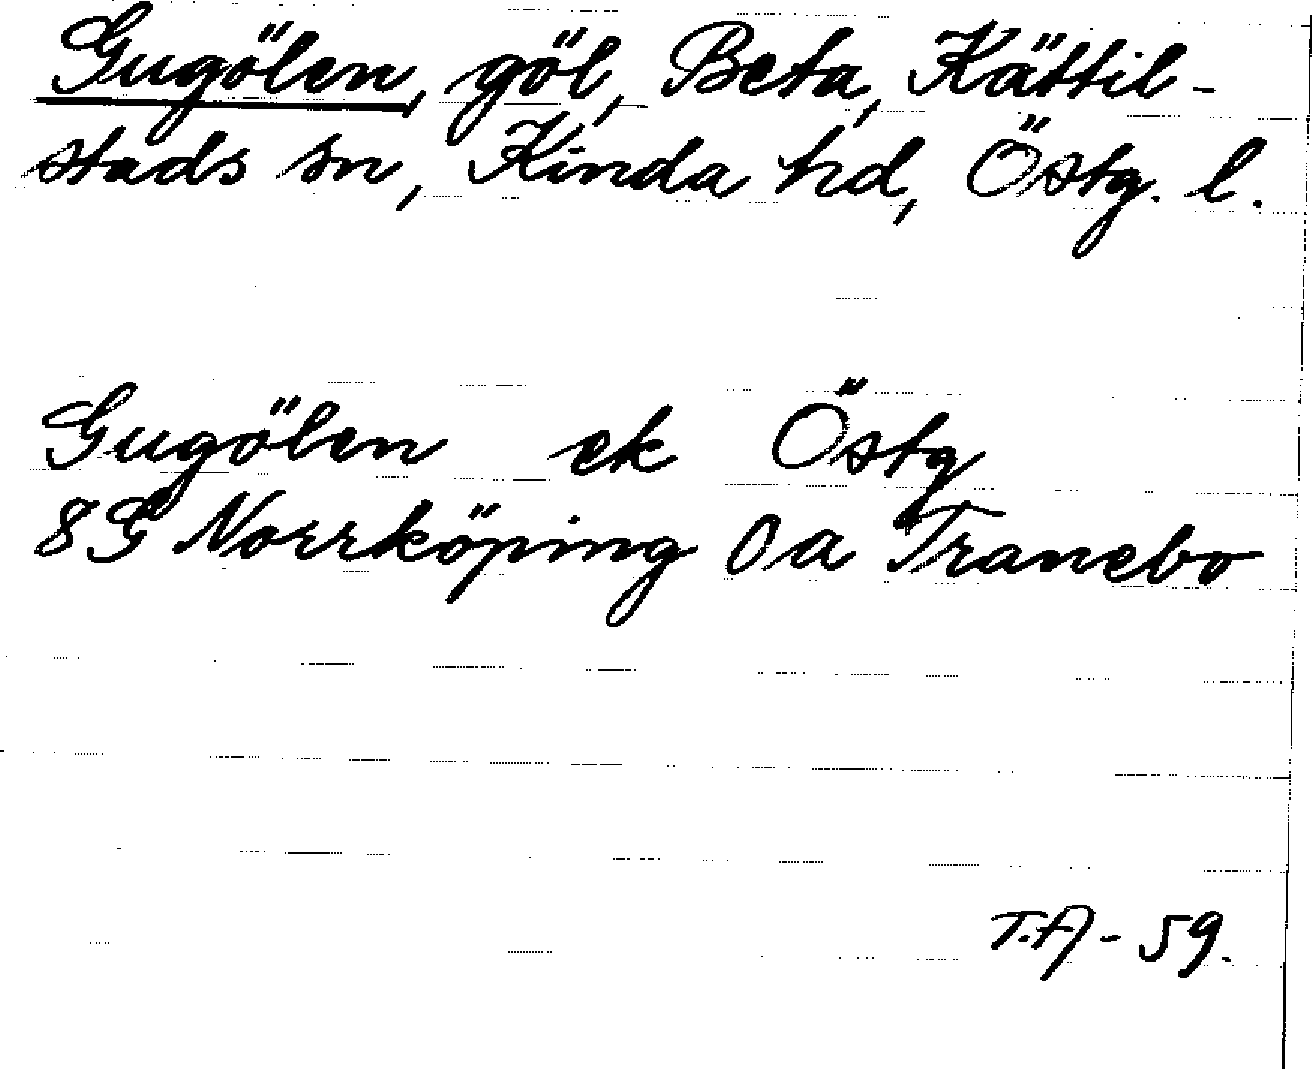 Gugölen, göl, Beta, Kättil-
stads sn, Kinda hd, Östg. l.
Gugölen ek Östg
8G Norrköping 0a Tranebo
T.A - 59.